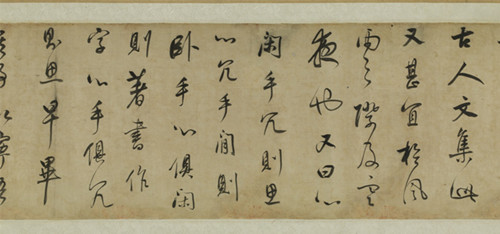 古人文集此
又甚宜於風
雨之際及雪
夜也又曰心
閑手冗則思
心冗手閒則
臥手心俱閑
則著書作
字心手俱冗
則思早畢
其事以寧吾